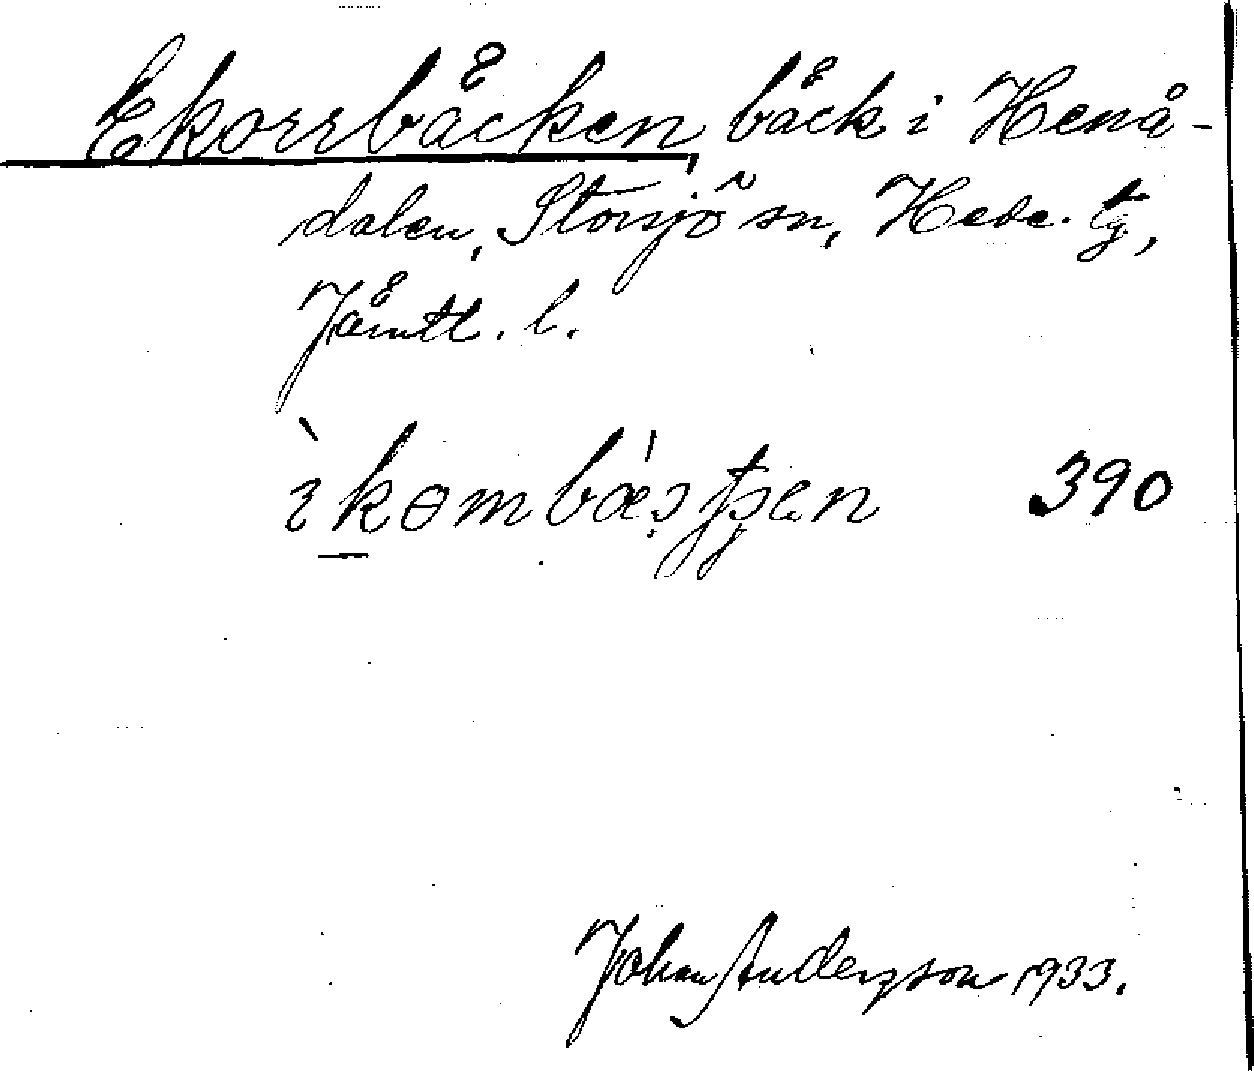 Ekorrbäcken, bäck i Henå-
dalen, Storsjö sn, Hede tg,
Jämtl. l.
390
Johan Anderzson 1933.